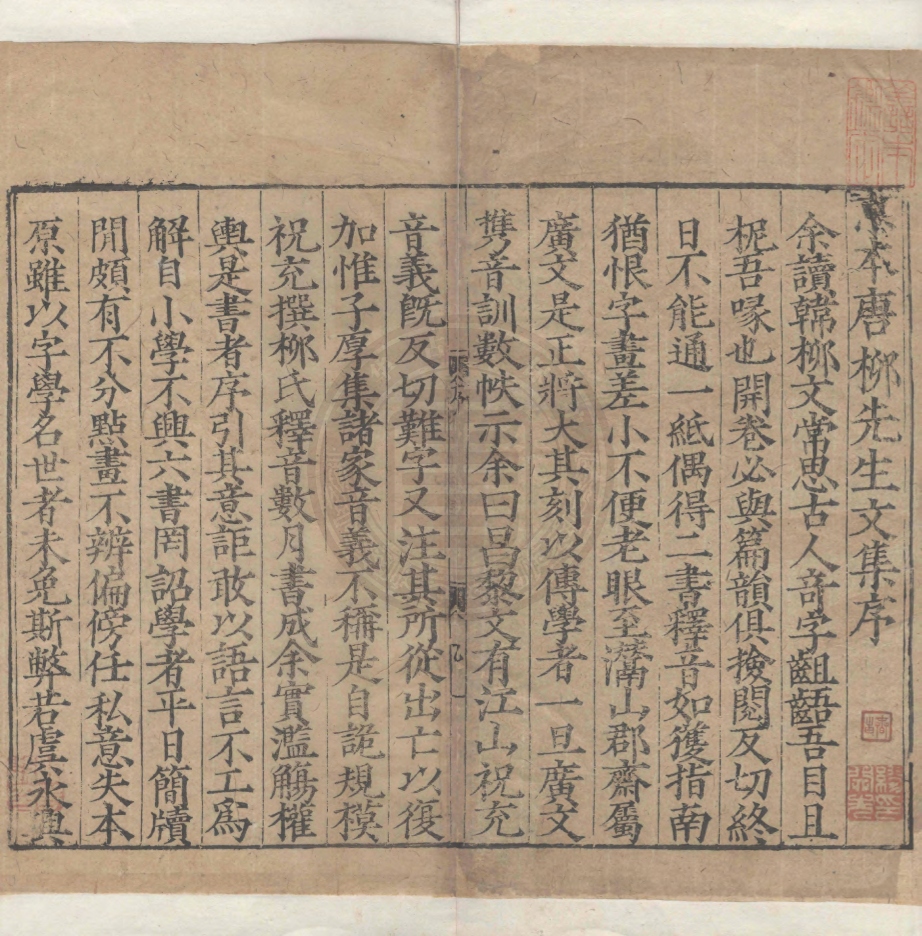 京本唐柳先生文集序
余讀韓柳文常思古人奇字齟齬吾目且
柅吾喙也開卷必與篇韻俱撿閱反切終
日不能通一紙偶得二書釋音如獲指南
猶恨字畫差小不便老眼至灊山郡齋屬
廣文是正將大其刻以傳學者一旦廣文
携音訓數帙示余曰昌黎文有江山祝充
音義旣反切難字又注其所從出亡以復
加惟子厚集諸家音義不稱是自詭規模
祝充撰柳氏釋音數月書成余實濫觴權
輿是書者序引其意詎敢以語言不工爲
解自小學不興六書罔詔學者平日簡牘
閒頗有不分點畫不辨偏傍任私意失本
原雖以字學名世者未免斯弊若虞永興